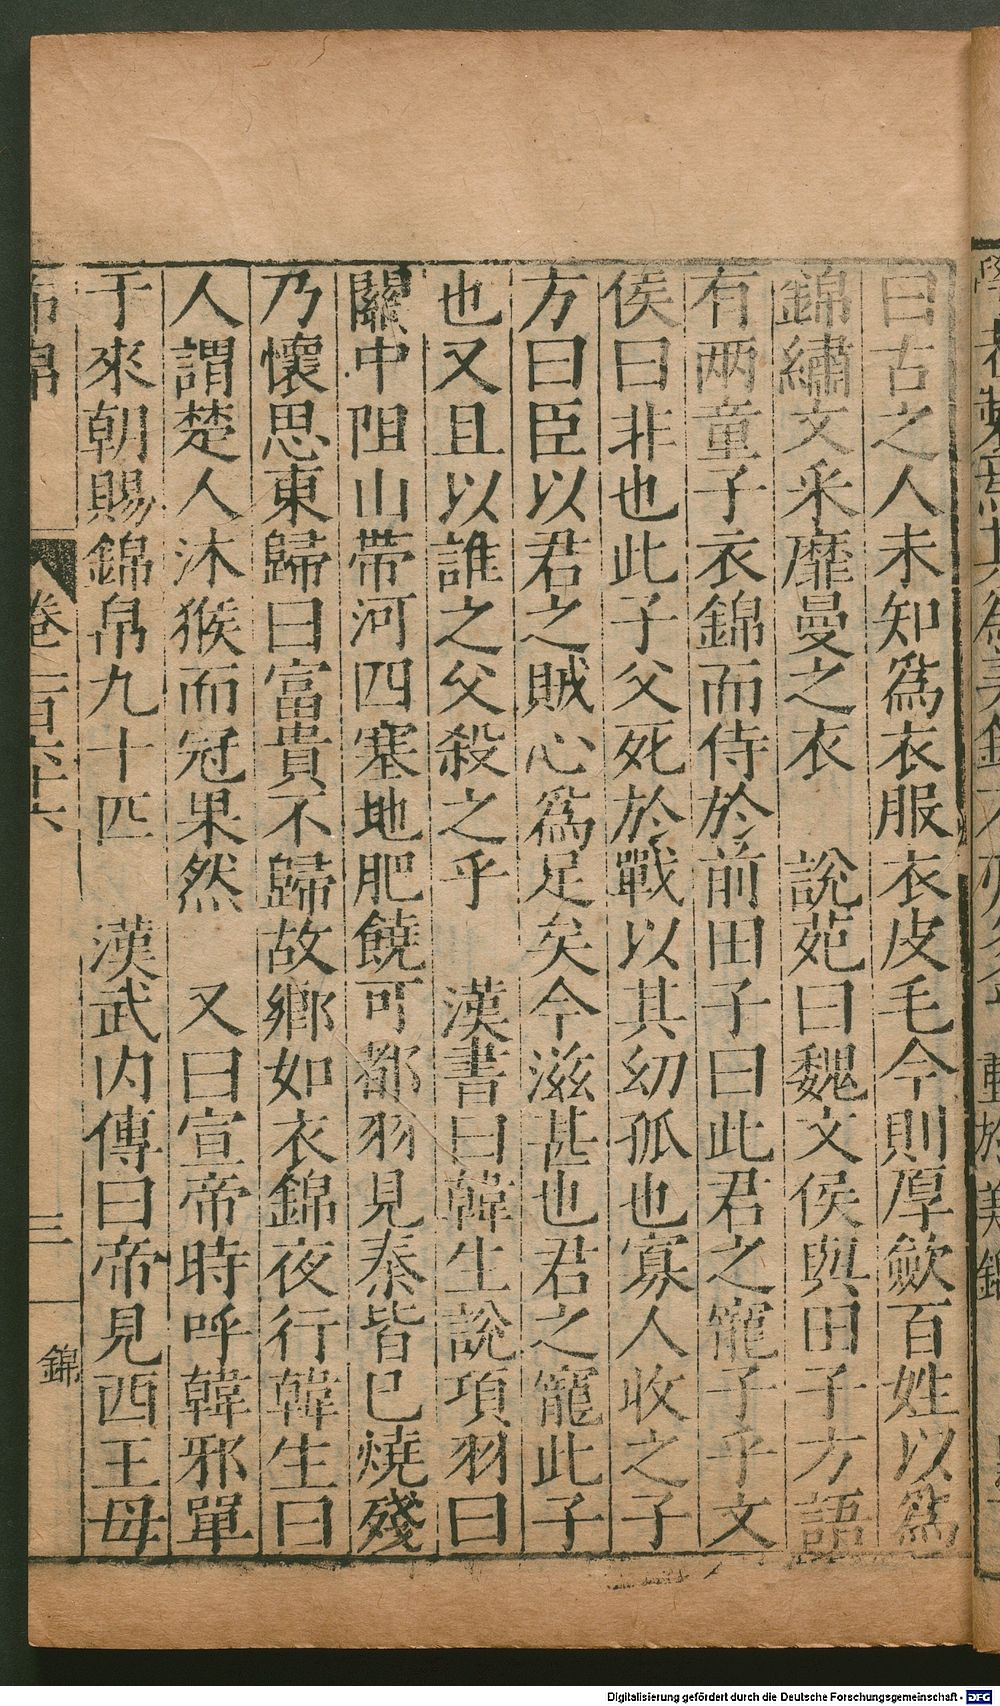 曰古之人未知爲衣服衣皮毛今則厚歛百姓以爲
錦繡文采靡曼之衣　說苑曰魏文侯與田子方語
有兩童子衣錦而侍於前田子曰此君之寵子乎文
侯曰非也此子父死於戰以其幼孤也寡人收之子
方曰臣以君之賊心爲足矣今滋甚也君之寵此子
也又且以誰之父殺之乎　漢書曰韓生說項羽曰
關中阻山帶河四塞地肥饒可都羽見秦皆已燒殘
乃懷思東歸曰富貴不歸故鄉如衣錦夜行韓生曰
人謂楚人沐猴而冠果然　又曰宣帝時呼韓邪單
于來朝賜錦帛九十匹　漢武内傳曰帝見西王母
布帛　卷一百六十六　三　錦
Digitalisierung gefördert durch die Deutsche Forschungsgemeinschaft - DFG